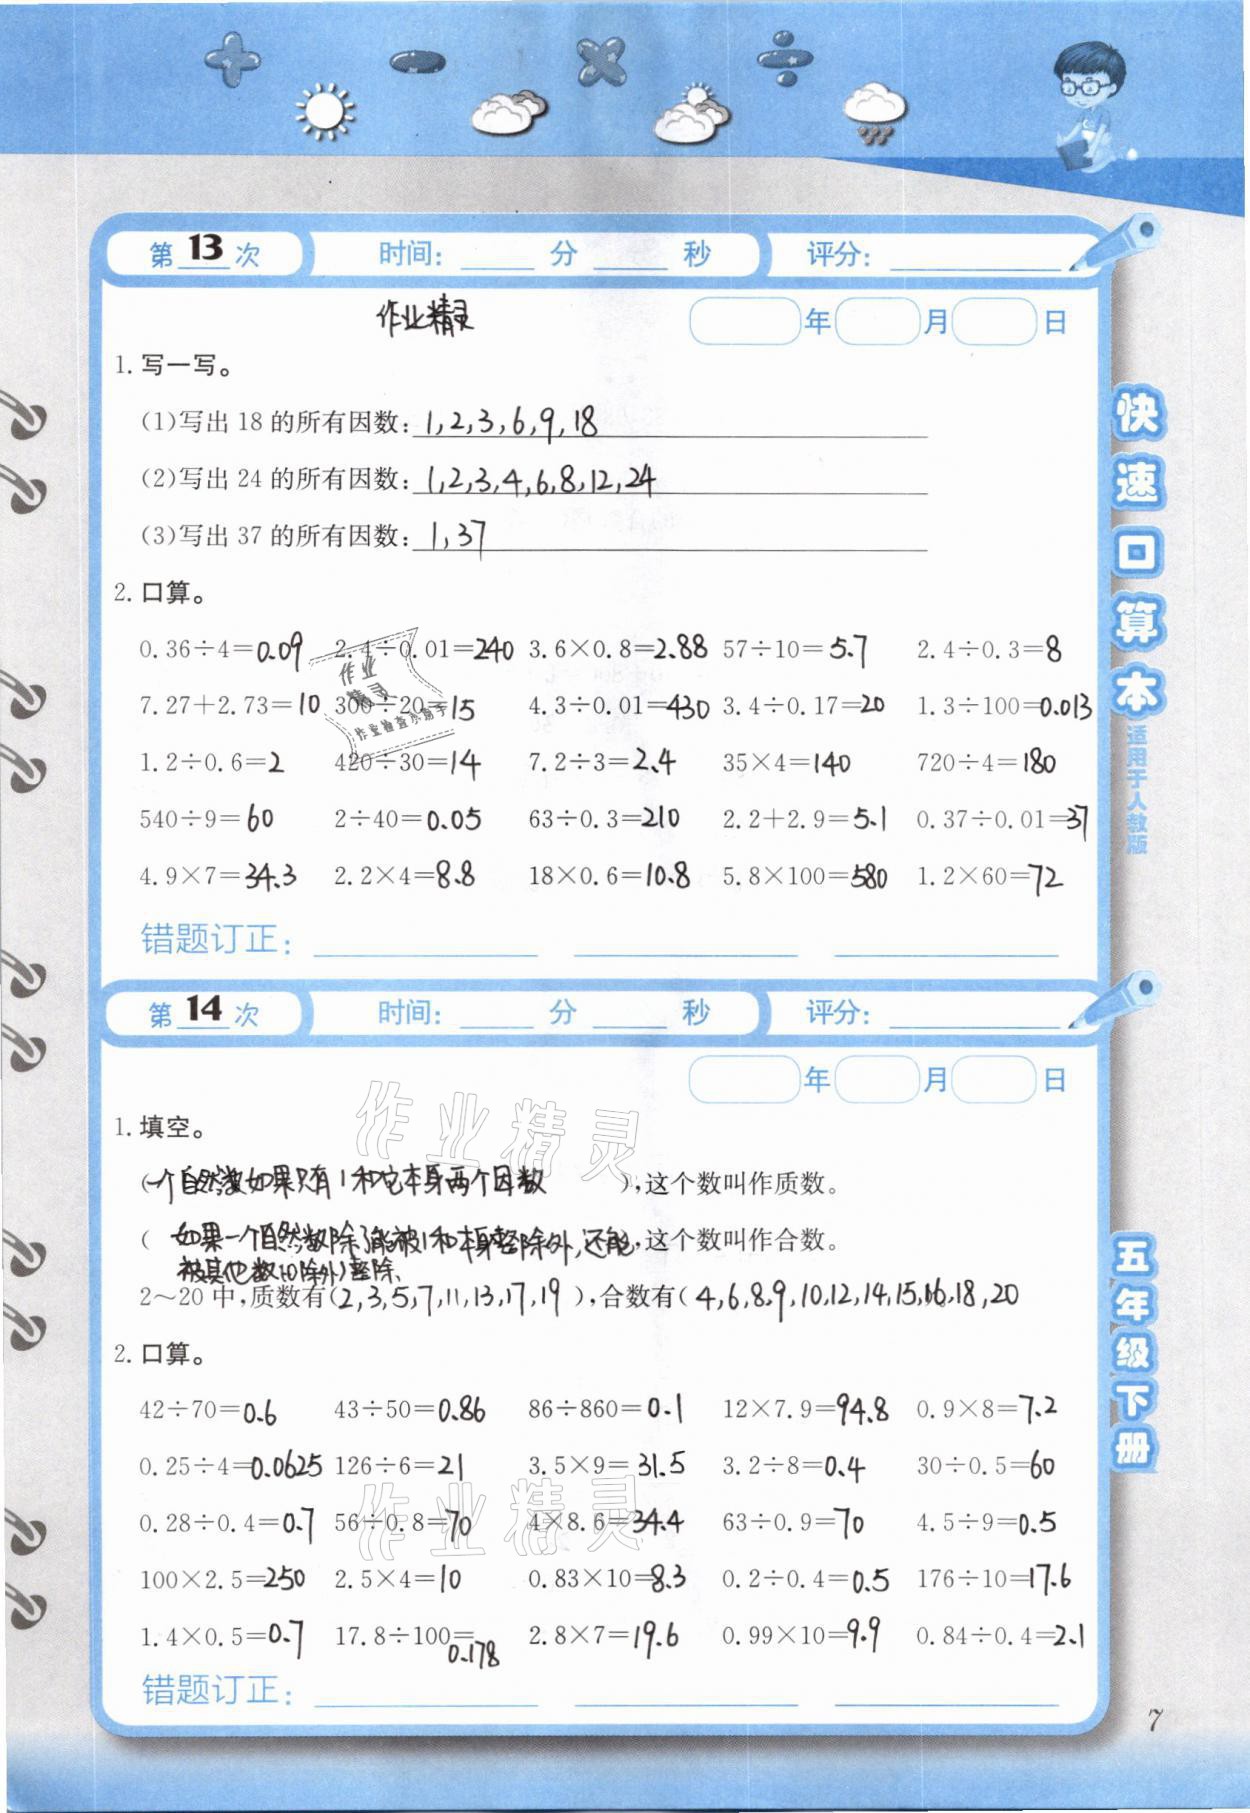 第 13 次 时间: 分 秒 评分:
作业精灵
年 月 日
1. 写一写。
(1)写出 18 的所有因数: 1,2,3,6,9,18
(2)写出 24 的所有因数: 1,2,3,4,6,8,12,24
(3)写出 37 的所有因数: 1,37
2. 口算。
0.36÷4=0.09 2.4÷0.01=240 3.6×0.8=2.88 57÷10=5.7 2.4÷0.3=8
7.27+2.73=10 300÷20=15 4.3÷0.01=430 3.4÷0.17=20 1.3÷100=0.013
1.2÷0.6=2 420÷30=14 7.2÷3=2.4 35×4=140 720÷4=180
540÷9=60 2÷40=0.05 63÷0.3=210 2.2+2.9=5.1 0.37÷0.01=37
4.9×7=34.3 2.2×4=8.8 18×0.6=10.8 5.8×100=580 1.2×60=72
作业
精灵
作业检查小助手
错题订正:
第 14 次 时间: 分 秒 评分:
年 月 日
作业精灵
1. 填空。
(一个自然数如果只有1和它本身两个因数 ),这个数叫作质数。
( 如果一个自然数除了能被1和本身整除外,还能 ,这个数叫作合数。
被其他数(0除外)整除、
2~20 中,质数有(2,3,5,7,11,13,17,19 ),合数有( 4,6,8,9,10,12,14,15,16,18,20
2. 口算。
42÷70=0.6 43÷50=0.86 86÷860=0.1 12×7.9=94.8 0.9×8=7.2
0.25÷4=0.0625 126÷6=21 3.5×9=31.5 3.2÷8=0.4 30÷0.5=60
作业精灵
0.28÷0.4=0.7 56÷0.8=70 4×8.6=34.4 63÷0.9=70 4.5÷9=0.5
100×2.5=250 2.5×4=10 0.83×10=8.3 0.2÷0.4=0.5 176÷10=17.6
1.4×0.5=0.7 17.8÷100=0.178 2.8×7=19.6 0.99×10=9.9 0.84÷0.4=2.1
错题订正:
快速口算本
适用于人教版
五年级下册
7